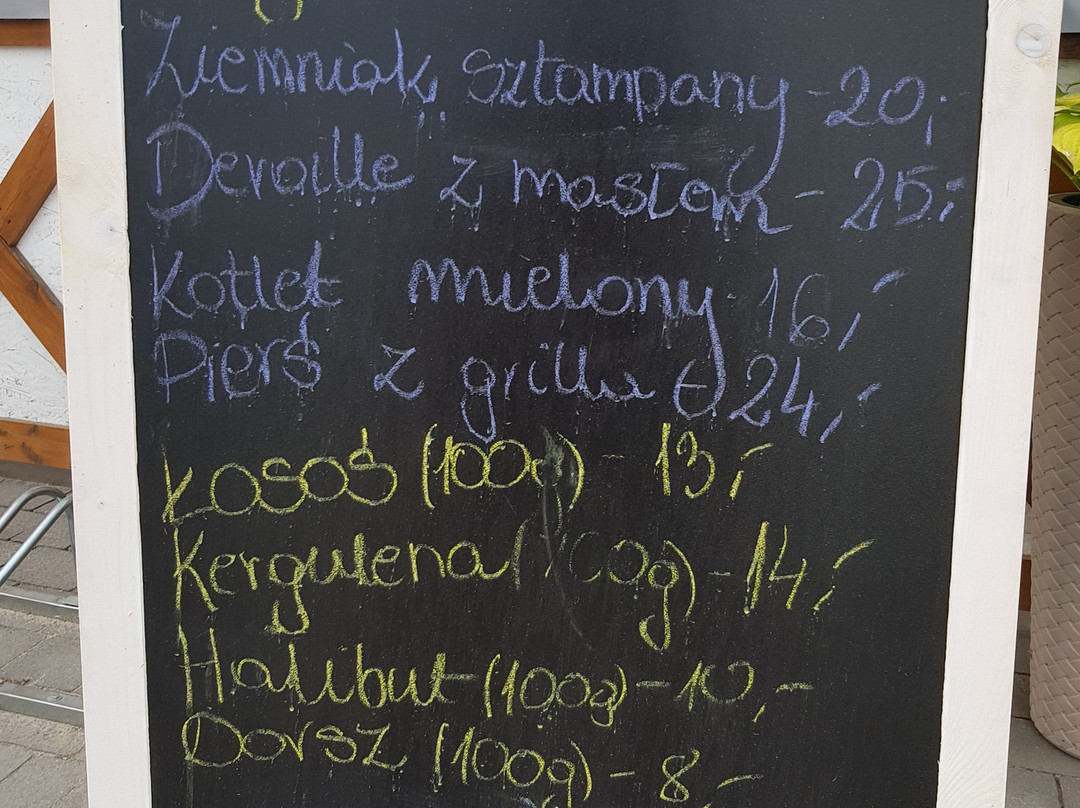 Ziemniak, Sztampany - 20,-
Devaille z masłem - 25,-
Kotlet mielony - 16,-
Pierś z grilla - 24,-
Łosoś (100g) - 13,-
Kergulena (100g) - 14,-
Halibut (100g) - 10,-
Dorsz (100g) - 8,-